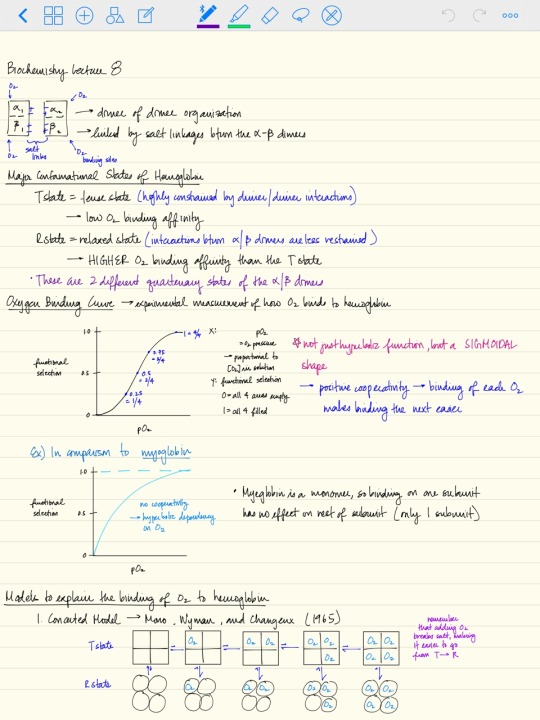 Biochemistry Lecture 8
O₂
O₂
α₁ α₂
β₁ β₂
O₂
salt links
O₂ binding sites
→ dimer of dimer organization
→ linked by salt linkages btwn the α-β dimers
Major Conformational States of Hemoglobin
T state = tense state (highly constrained by dimer/dimer interactions)
→ low O₂ binding affinity
R state = relaxed state (interactions btwn α/β dimers are less restrained)
→ HIGHER O₂ binding affinity than the T state
* These are 2 different quaternary states of the α/β dimers
Oxygen Binding Curve → experimental measurement of how O₂ binds to hemoglobin
1.0
0.5
0
functional
selection
1 = 4/4
0.75
= 3/4
0.5
= 2/4
0.25
= 1/4
pO₂
X: pO₂
= O₂ pressure
→ proportional to
[O₂] in solution
Y: functional selection
0 = all 4 areas empty
1 = all 4 filled
* not just hyperbolic function, but a SIGMOIDAL
shape
→ positive cooperativity → binding of each O₂
makes binding the next easier
Ex) In comparison to myoglobin
1.0
0.5
0
functional
selection
no cooperativity
→ hyperbolic dependency
on O₂
pO₂
• Myoglobin is a monomer, so binding on one subunit
has no effect on rest of subunit (only 1 subunit)
Models to explain the binding of O₂ to hemoglobin
1. Concerted Model → Mono, Wyman, and Changeux (1965)
T state
O₂
O₂ O₂
O₂ O₂
O₂
O₂ O₂
O₂ O₂
R state
O₂
O₂ O₂
O₂ O₂
O₂
O₂ O₂
O₂ O₂
remember
that adding O₂
breaks salt, making
it easier to go
from T → R